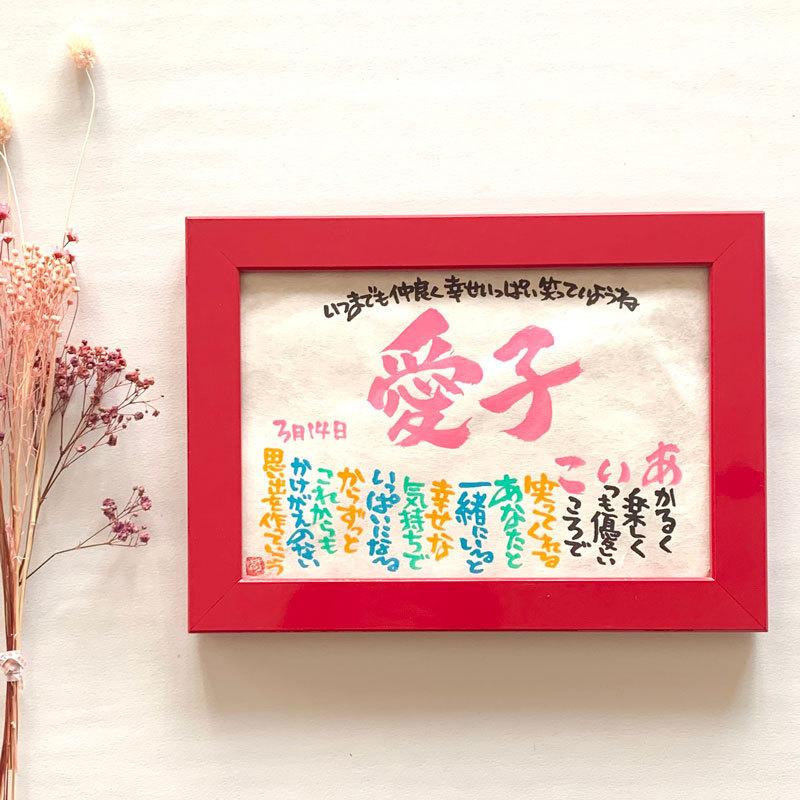 いつまでも仲良く幸せいっぱい笑っていようね
愛子
3月14日
あかるく
楽しく
いつも優しい
こころで
笑ってくれる
あなたと
一緒にいると
幸せな
気持ちで
いっぱいになる
からずっと
これからも
かけがえのない
思い出を作っていこう